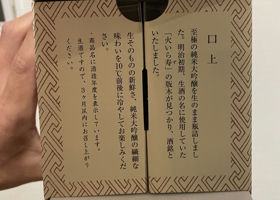 口上
至極の純米大吟醸を生のまま瓶詰しまし
た。明治初期、生酒の名に使用していた
「火いら寿」の版木が見つかり、酒銘と
いたしました。
生そのものの新鮮さ、純米大吟醸の繊細な
味わいを10℃前後に冷やしてお楽しみくだ
さい。
商品名に酒造年度を表示しています。
生酒ですので、3ヶ月以内にお召し上がり
ください。